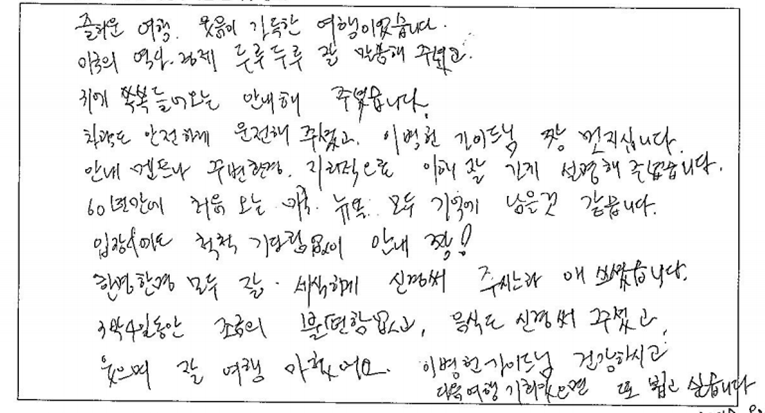 즐거운 여행. 웃음이 가득한 여행이었습니다.
미국의 역사. 경제 두루두루 잘 말씀해 주셨고.
귀에 쏙쏙 들어오는 안내해 주셨습니다.
차량도 안전하게 운전해 주셨고, 이병헌 가이드님 짱 멋지십니다.
안내 멘트나 주변환경. 지리적으로 이해 잘 가게 설명해 주셨습니다.
60년만에 처음 오는 미국. 뉴욕 모두 기억에 남을것 같습니다.
입장시에도 척척 기다림없이 안내 짱!
한명한명 모두 잘. 세심하게 신경써 주시느라 애 쓰셨습니다.
3박4일동안 조금의 불편함없고, 음식도 신경써 주셨고
웃으며 잘 여행 마쳤어요. 이병헌가이드님 건강하시고
다음여행 기회있으면 또 뵙고 싶습니다